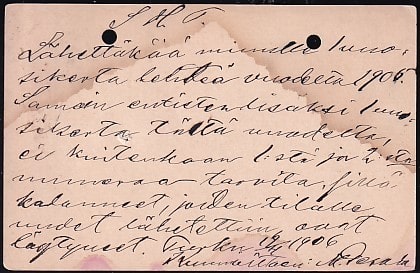 S. H. T.
Lähettäkää minulle 1 vuo-
sikerta lehteä vuodelta 1905.
Samoin entistendisaksi 1 vuo-
sikerta tältä vuodelta,
ei kuitenkaan 1:stä ja 2:sta
numeroa tarvita, sillä
kadonneet, joiden tilalle
uudet lähetettiin, ovat
löytyneet. Turku 19/ 1906
Kunnioittaen: M.